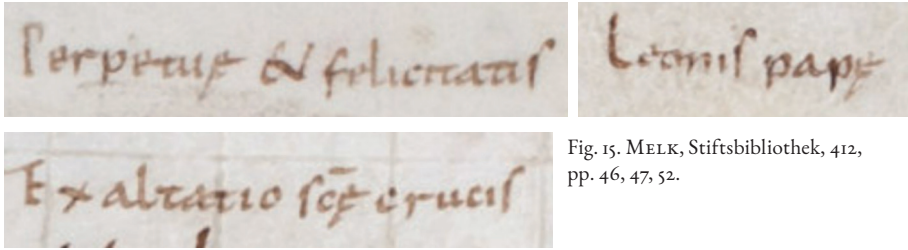 Perpetuę & felicitatis
Leonis papę
Exaltatio sc̄ę crucis
Fig. 15. MELK, Stiftsbibliothek, 412,
pp. 46, 47, 52.